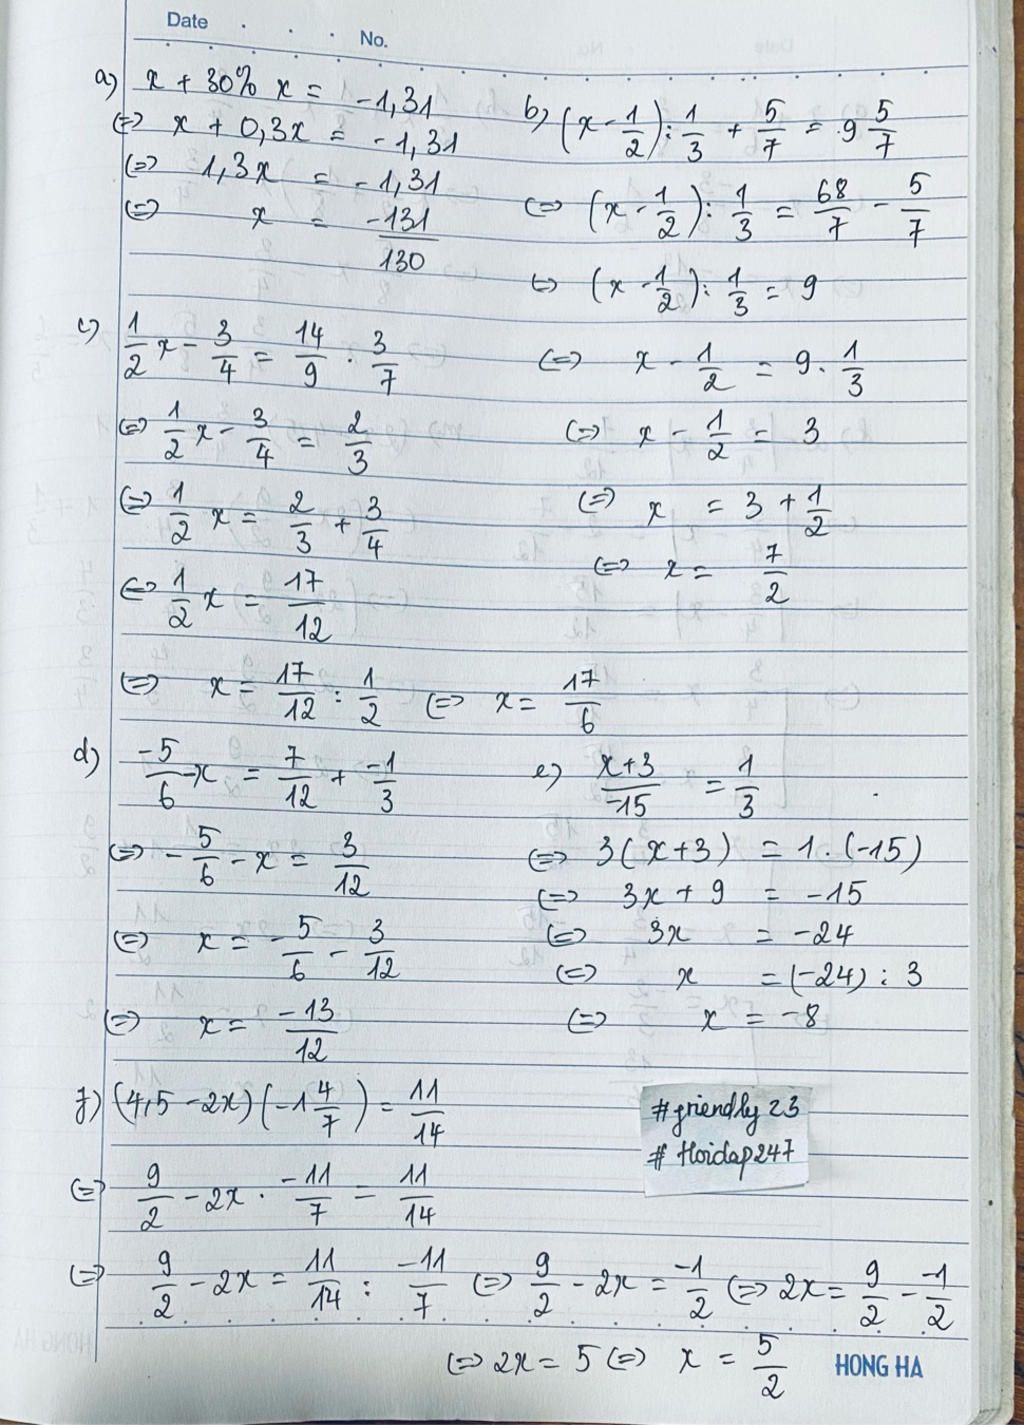 Date
No.
a) x + 30% x = -1,31
(=) x + 0,3x = -1,31
(=) 1,3x = -1,31
(=) x = -131/130
b) (x - 1/2) : 1/3 + 5/7 = 9 5/7
(=) (x - 1/2) : 1/3 = 68/7 - 5/7
(=) (x - 1/2) : 1/3 = 9
(=) x - 1/2 = 9 . 1/3
(=) x - 1/2 = 3
(=) x = 3 + 1/2
(=) x = 7/2
c) 1/2 x - 3/4 = 14/9 : 3/7
(=) 1/2 x - 3/4 = 2/3
(=) 1/2 x = 2/3 + 3/4
(=) 1/2 x = 17/12
(=) x = 17/12 : 1/2 (=) x = 17/6
d) -5/6 - x = 7/12 + -1/3
(=) -5/6 - x = 3/12
(=) x = -5/6 - 3/12
(=) x = -13/12
e) x+3/-15 = 1/3
(=) 3(x+3) = 1.(-15)
(=) 3x + 9 = -15
(=) 3x = -24
(=) x = (-24) : 3
(=) x = -8
f) (4,5 - 2x)(-1 4/7) = 11/14
(=) 9/2 - 2x . -11/7 = 11/14
(=) 9/2 - 2x = 11/14 : -11/7 (=) 9/2 - 2x = -1/2 (=) 2x = 9/2 - -1/2
(=) 2x = 5 (=) x = 5/2
#friendly23
# Hoidap247
HONG HA